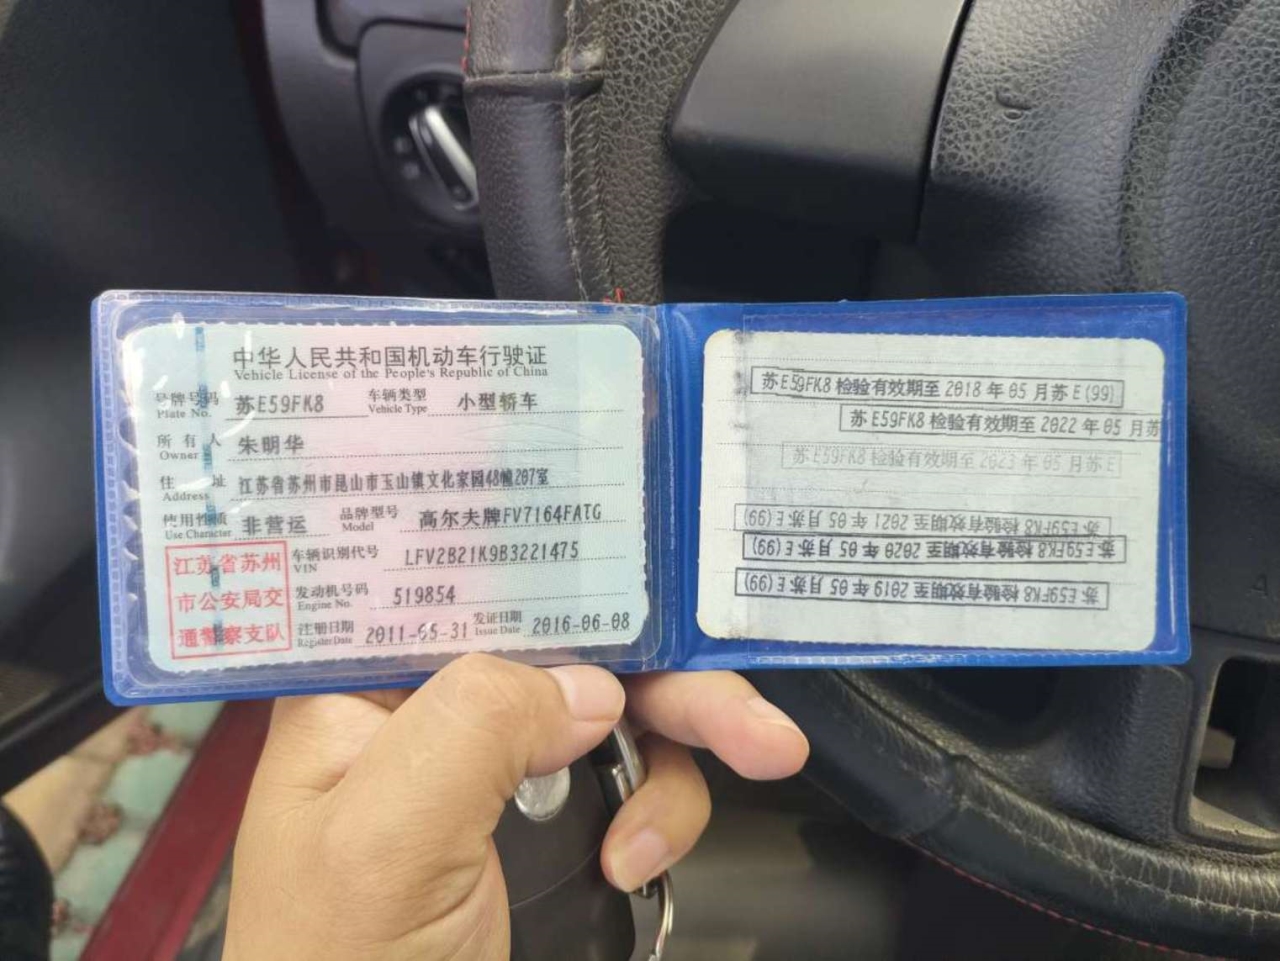 中华人民共和国机动车行驶证
Vehicle License of the People's Republic of China
号牌号码 苏E59FK8 车辆类型 小型轿车
Plate No. Vehicle Type
所有人 朱明华
Owner
住址 江苏省苏州市昆山市玉山镇文化家园48幢207室
Address
使用性质 非营运 品牌型号 高尔夫牌FV7164FATG
Use Character Model
江苏省苏州 车辆识别代号 LFV2B21K9B3221475
VIN
市公安局交 发动机号码 519854
Engine No.
通警察支队 注册日期 2011-05-31 发证日期 2016-06-08
Register Date Issue Date
苏E59FK8 检验有效期至 2018 年 05 月苏E(99)
苏E59FK8 检验有效期至 2022 年 05 月苏
苏E59FK8 检验有效期至 2023 年 05 月苏E
苏E59FK8 检验有效期至 2021 年 05 月苏E(99)
苏E59FK8 检验有效期至 2020 年 05 月苏E(99)
苏E59FK8 检验有效期至 2019 年 05 月苏E(99)